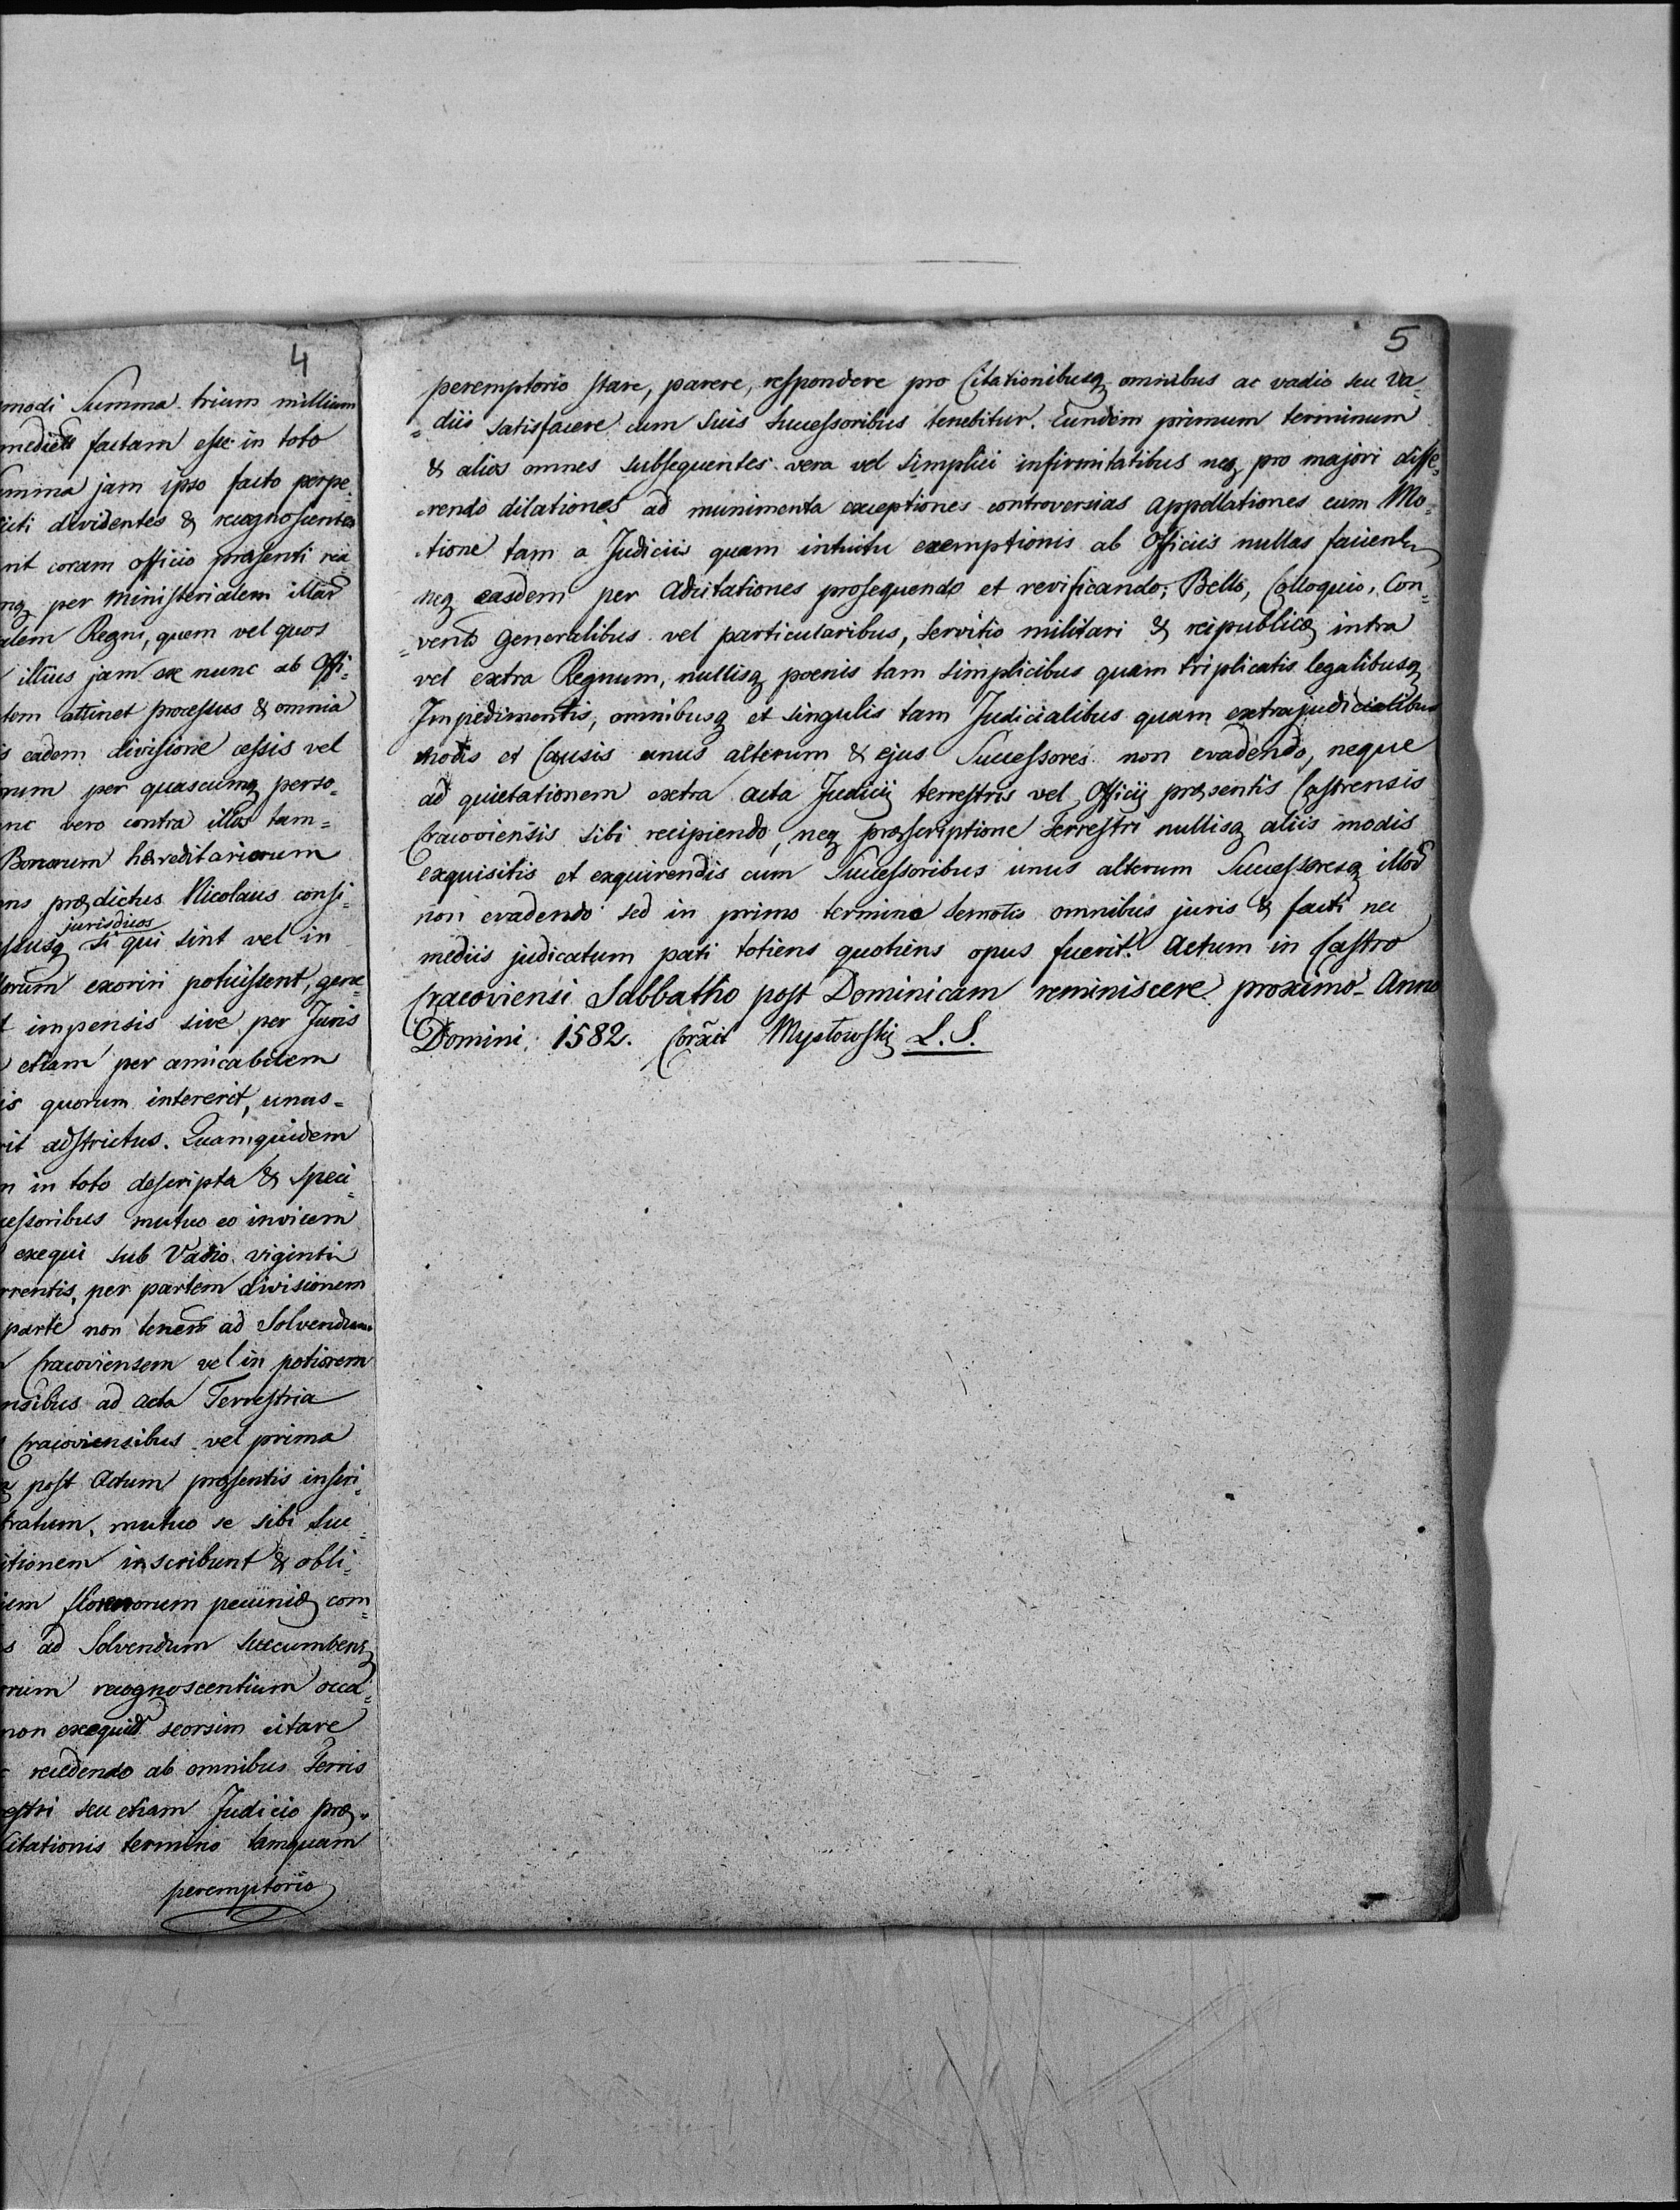 4
modi Summa trium millium
mediete factam esse in toto
umma jam ipso facto perpe=
icti dividentes & recognoscentes
rit coram officio præsenti rea
nq per ministerialem illar
alem Regni, quem vel quos
illius jam ex nunc ab Offi=
tem attinet processus & omnia
s eadem divisione cessis vel
rum per quascumq perso=
nc vero contra illos tam=
Bonorum hæreditariorum
ns prædictus Nicolaus consi=
jurisdicos
ssusq si qui sint vel in
lorum exoriri potuissent, gene=
t impensis sive per Juris
etiam per amicabilem
is quorum intererit, unus=
rit adstrictus. Quamquidem
n in toto descripta & speci=
cessoribus mutuo eo invicem
exequi sub Vadio viginti
rrentis, per partem divisionem
parte non tenen ad Solvendum
Cracoviensem vel in potiorem
nsibus ad acta Terrestria
Cracoviensibus vel prima
post Actum præsentis inscri=
tratum, mutuo se sibi suc=
itionem inscribunt & obli=
iem florenorum pecuniæ com=
s ad Solvendum succumbenq
rium recognoscentium occa=
non exequid seorsim citare
recedendo ab omnibus Terris
estri seu etiam Judicio præ=
Citationis termino tamquam
peremptorio
5
peremptorio stare, parere, respondere pro Citationibusq omnibus ac vadio seu Va=
=diis satisfacere cum suis successoribus tenebitur. Eundem primum terminum
& alios omnes subsequentes vera vel simplici infirmitatibus neq pro majori diffe=
=rendo dilationes ad munimenta exceptiones controversias appellationes cum Mo=
=tione tam a Judiciis quam intuitu exemptionis ab Officiis nullas facient
neq easdem per Adcitationes prosequendo et revificando; Bello, Colloquio, Con=
=vento generalibus vel particularibus, servitio militari & reipublicæ intra
vel extra Regnum, nullisq poenis tam simplicibus quam triplicatis legalibusq
Impedimentis, omnibusq et singulis tam Judicialibus quam extrajudicialibus
modis et Causis unus alterum & ejus Successores non evadendo, neque
ad quietationem extra acta Judicii terrestris vel Officii præsentis Castrensis
Cracoviensis sibi recipiendo, neq præscriptione Terrestri nullisq aliis modis
exquisitis et exquirendis cum Successoribus unus alterum Successoresq illor
non evadendo sed in primo termino semotis omnibus juris & facti re
mediis judicatum pati totiens quotiens opus fuerit. Actum in Castro
Cracoviensi Sabbatho post Dominicam reminiscere proximo Anno
Domini 1582. Corãxit Mysłowski L. S.